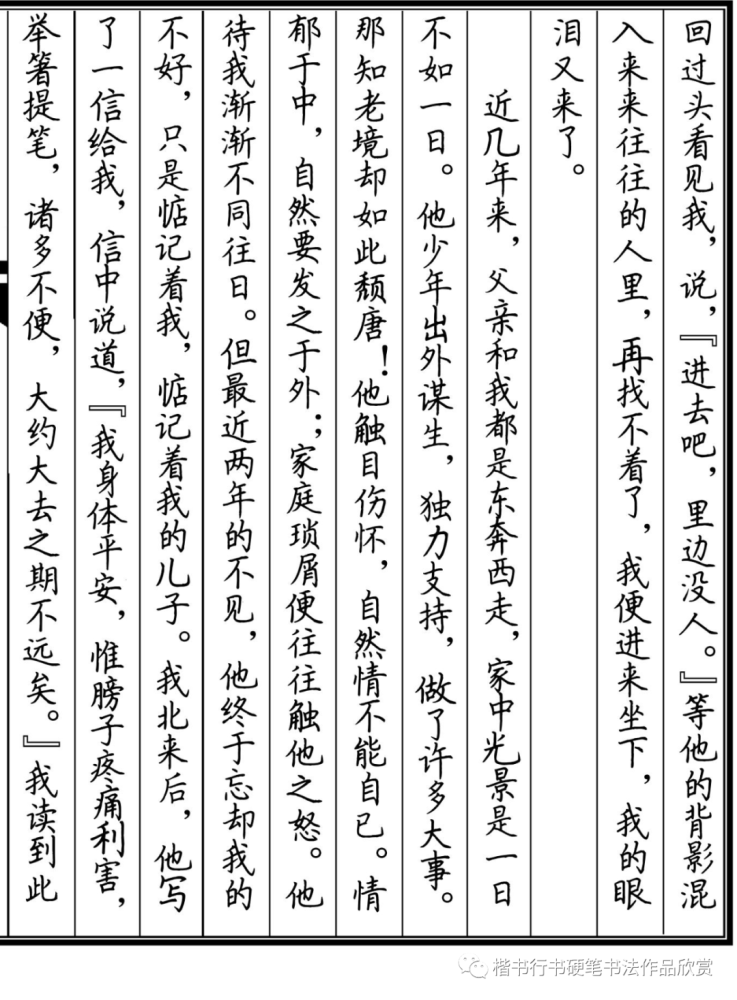 回过头看见我，说，『进去吧，里边没人。』等他的背影混
入来来往往的人里，再找不着了，我便进来坐下，我的眼
泪又来了。
近几年来，父亲和我都是东奔西走，家中光景是一日
不如一日。他少年出外谋生，独力支持，做了许多大事。
那知老境却如此颓唐！他触目伤怀，自然情不能自已。情
郁于中，自然要发之于外；家庭琐屑便往往触他之怒。他
待我渐渐不同往日。但最近两年的不见，他终于忘却我的
不好，只是惦记着我，惦记着我的儿子。我北来后，他写
了一信给我，信中说道，『我身体平安，惟膀子疼痛利害，
举箸提笔，诸多不便，大约大去之期不远矣。』我读到此
楷书行书硬笔书法作品欣赏